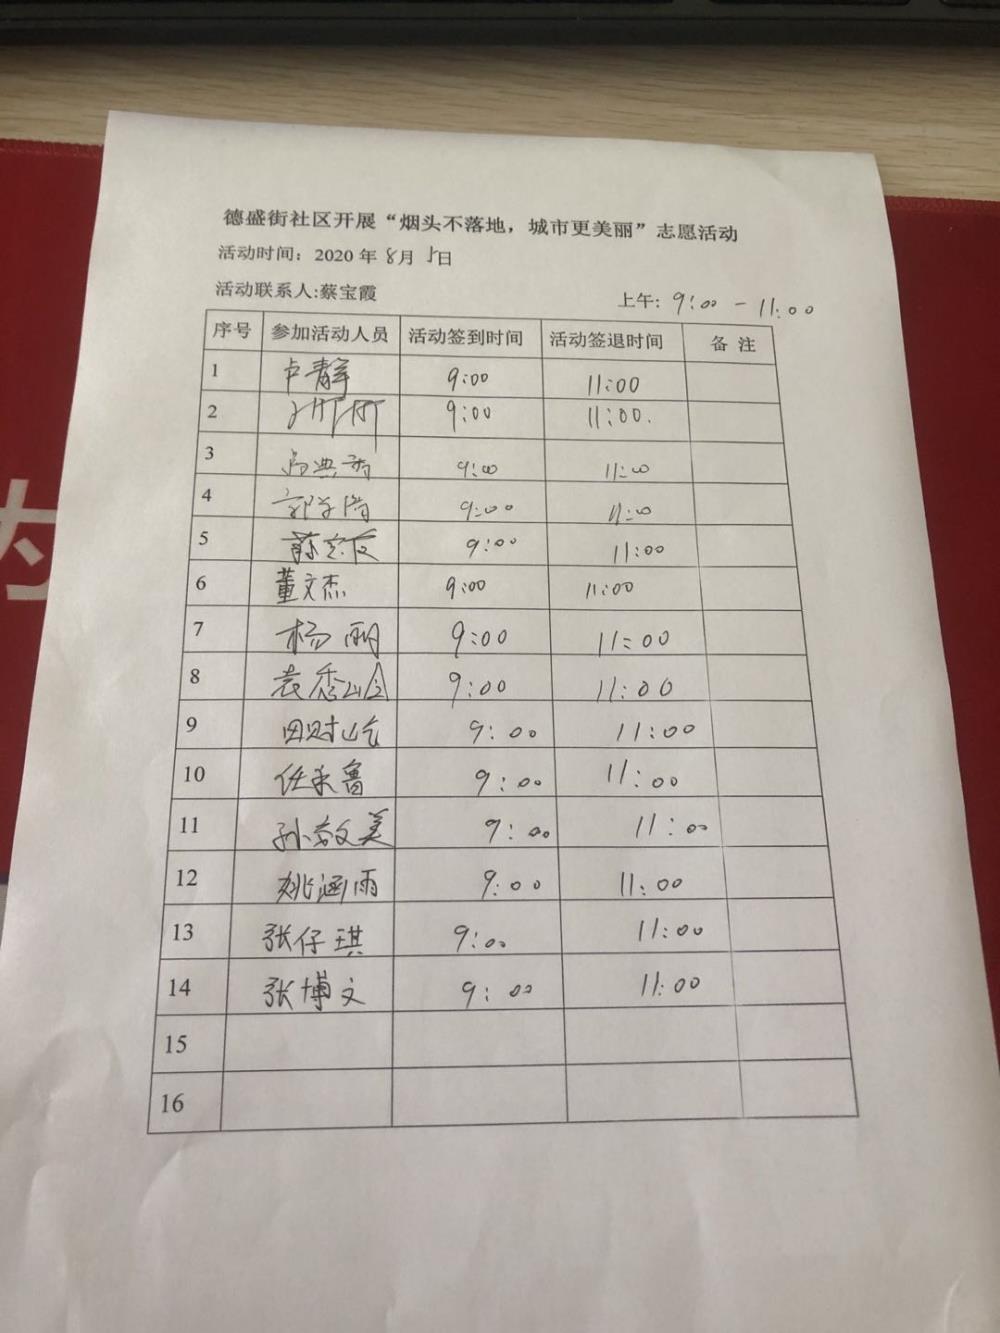 德盛街社区开展“烟头不落地，城市更美丽”志愿活动
活动时间：2020 年 8月 5日
活动联系人:蔡宝霞
上午: 9:00 - 11:00
序号 参加活动人员 活动签到时间 活动签退时间 备 注
1 卢静 9:00 11:00
2 9:00 11:00.
3 9:00 11:00
4 9:00 11:00
5 9:00 11:00
6 董文杰 9:00 11:00
7 杨丽 9:00 11:00
8 袁秀 9:00 11:00
9 9:00 11:00
10 任永鲁 9:00 11:00
11 孙敬美 9:00 11:00
12 姚涵雨 9:00 11:00
13 张仔琪 9:00 11:00
14 张博文 9:00 11:00
15
16